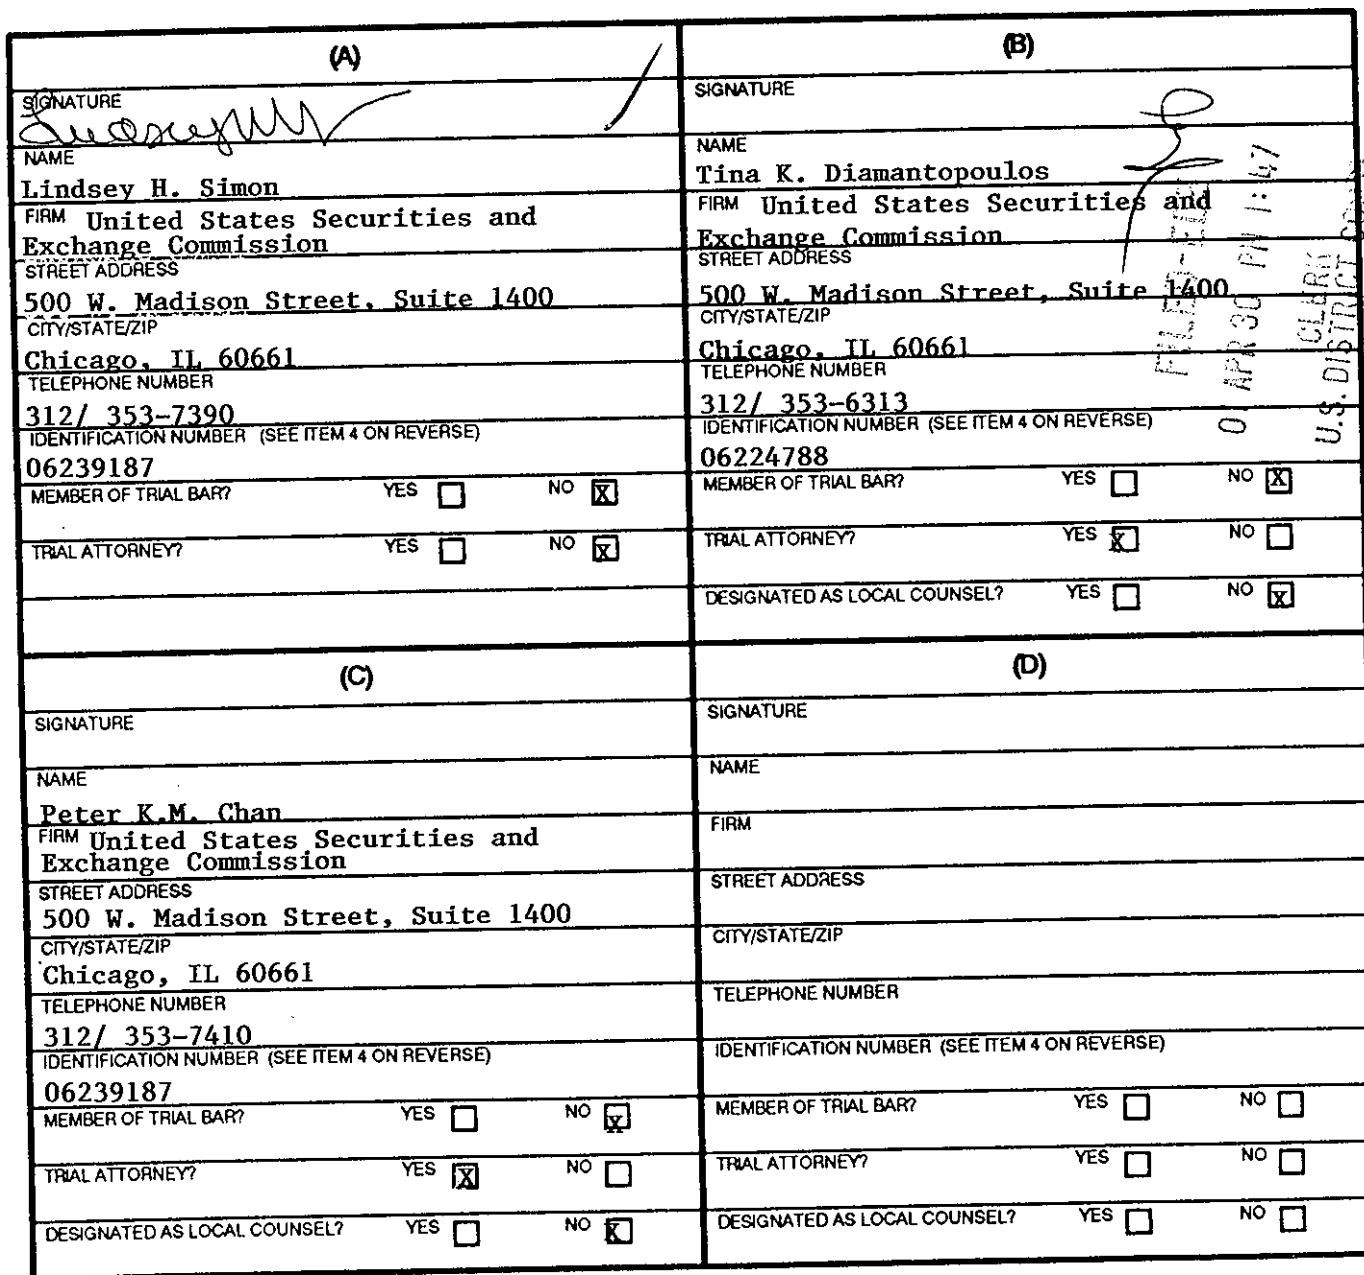 (A)
SIGNATURE
NAME
Lindsey H. Simon
FIRM United States Securities and
Exchange Commission
STREET ADDRESS
500 W. Madison Street, Suite 1400
CITY/STATE/ZIP
Chicago, IL 60661
TELEPHONE NUMBER
312/ 353-7390
IDENTIFICATION NUMBER (SEE ITEM 4 ON REVERSE)
06239187
MEMBER OF TRIAL BAR? YES NO X
TRIAL ATTORNEY? YES NO X
(B)
SIGNATURE
NAME
Tina K. Diamantopoulos
FIRM United States Securities and
Exchange Commission
STREET ADDRESS
500 W. Madison Street, Suite 1400
CITY/STATE/ZIP
Chicago, IL 60661
TELEPHONE NUMBER
312/ 353-6313
IDENTIFICATION NUMBER (SEE ITEM 4 ON REVERSE)
06224788
MEMBER OF TRIAL BAR? YES NO X
TRIAL ATTORNEY? YES X NO
DESIGNATED AS LOCAL COUNSEL? YES NO X
01 APR 30 PM 1:47
CLERK
U.S. DISTRICT
(C)
SIGNATURE
NAME
Peter K.M. Chan
FIRM United States Securities and
Exchange Commission
STREET ADDRESS
500 W. Madison Street, Suite 1400
CITY/STATE/ZIP
Chicago, IL 60661
TELEPHONE NUMBER
312/ 353-7410
IDENTIFICATION NUMBER (SEE ITEM 4 ON REVERSE)
06239187
MEMBER OF TRIAL BAR? YES NO X
TRIAL ATTORNEY? YES X NO
DESIGNATED AS LOCAL COUNSEL? YES NO X
(D)
SIGNATURE
NAME
FIRM
STREET ADDRESS
CITY/STATE/ZIP
TELEPHONE NUMBER
IDENTIFICATION NUMBER (SEE ITEM 4 ON REVERSE)
MEMBER OF TRIAL BAR? YES NO
TRIAL ATTORNEY? YES NO
DESIGNATED AS LOCAL COUNSEL? YES NO